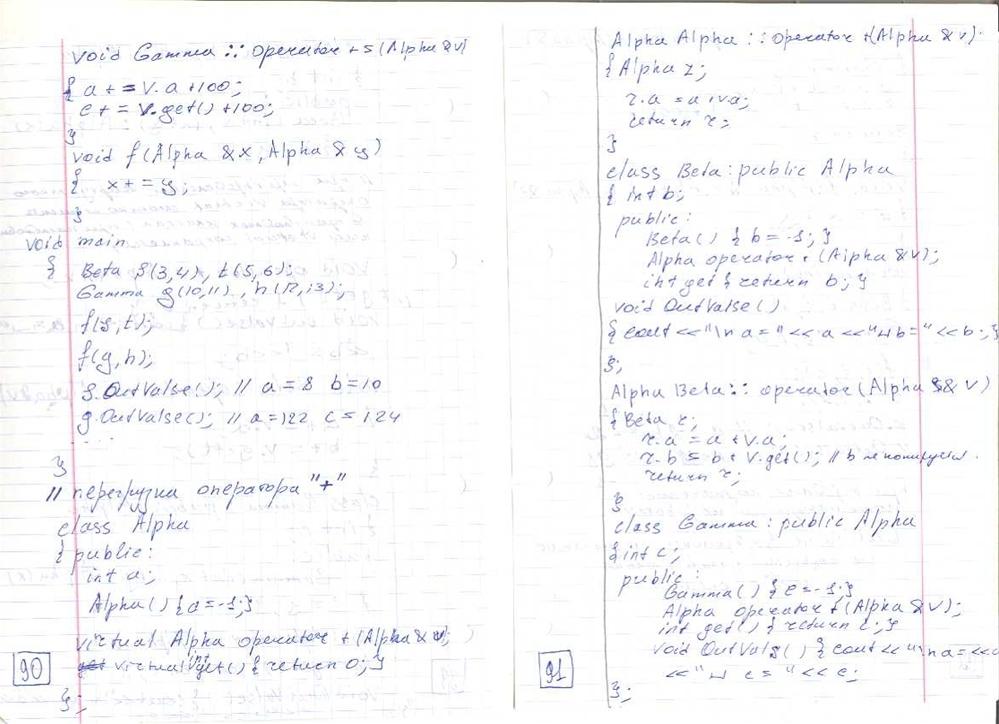 void Gamma :: operator += (Alpha &v)
{ a += v.a+100;
c += v.get()+100;
}
void f(Alpha &x, Alpha &y)
{ x+=y;
}
void main
{ Beta s(3,4), t(5,6);
Gamma g(10,11), h(12,13);
f(s,t);
f(g,h);
s.OutValse(); // a=8 b=10
g.OutValse(); // a=122 c=124
....
}
// перегрузка оператора "+"
class Alpha
{ public:
int a;
Alpha() {a=-1;}
virtual Alpha operator + (Alpha &v);
virtual int get() { return 0; }
};
90
Alpha Alpha :: operator +(Alpha &v)
{ Alpha z;
z.a = a+v.a;
return z;
}
class Beta: public Alpha
{ int b;
public:
Beta() { b=-1; }
Alpha operator + (Alpha &v);
int get { return b; }
void OutValse()
{ cout <<"\n a=" << a <<"⊔b=" <<b ;}
};
Alpha Beta :: operator (Alpha &v)
{ Beta z;
z.a = a + v.a;
z.b = b + v.get(); // b не копируется.
return z;
}
class Gamma : public Alpha
{ int c;
public:
Gamma() { c=-1; }
Alpha operator +(Alpha &v);
int get() { return c; }
void OutValse() { cout <<"\n a=<<
<<"⊔ c = " << c;
};
91